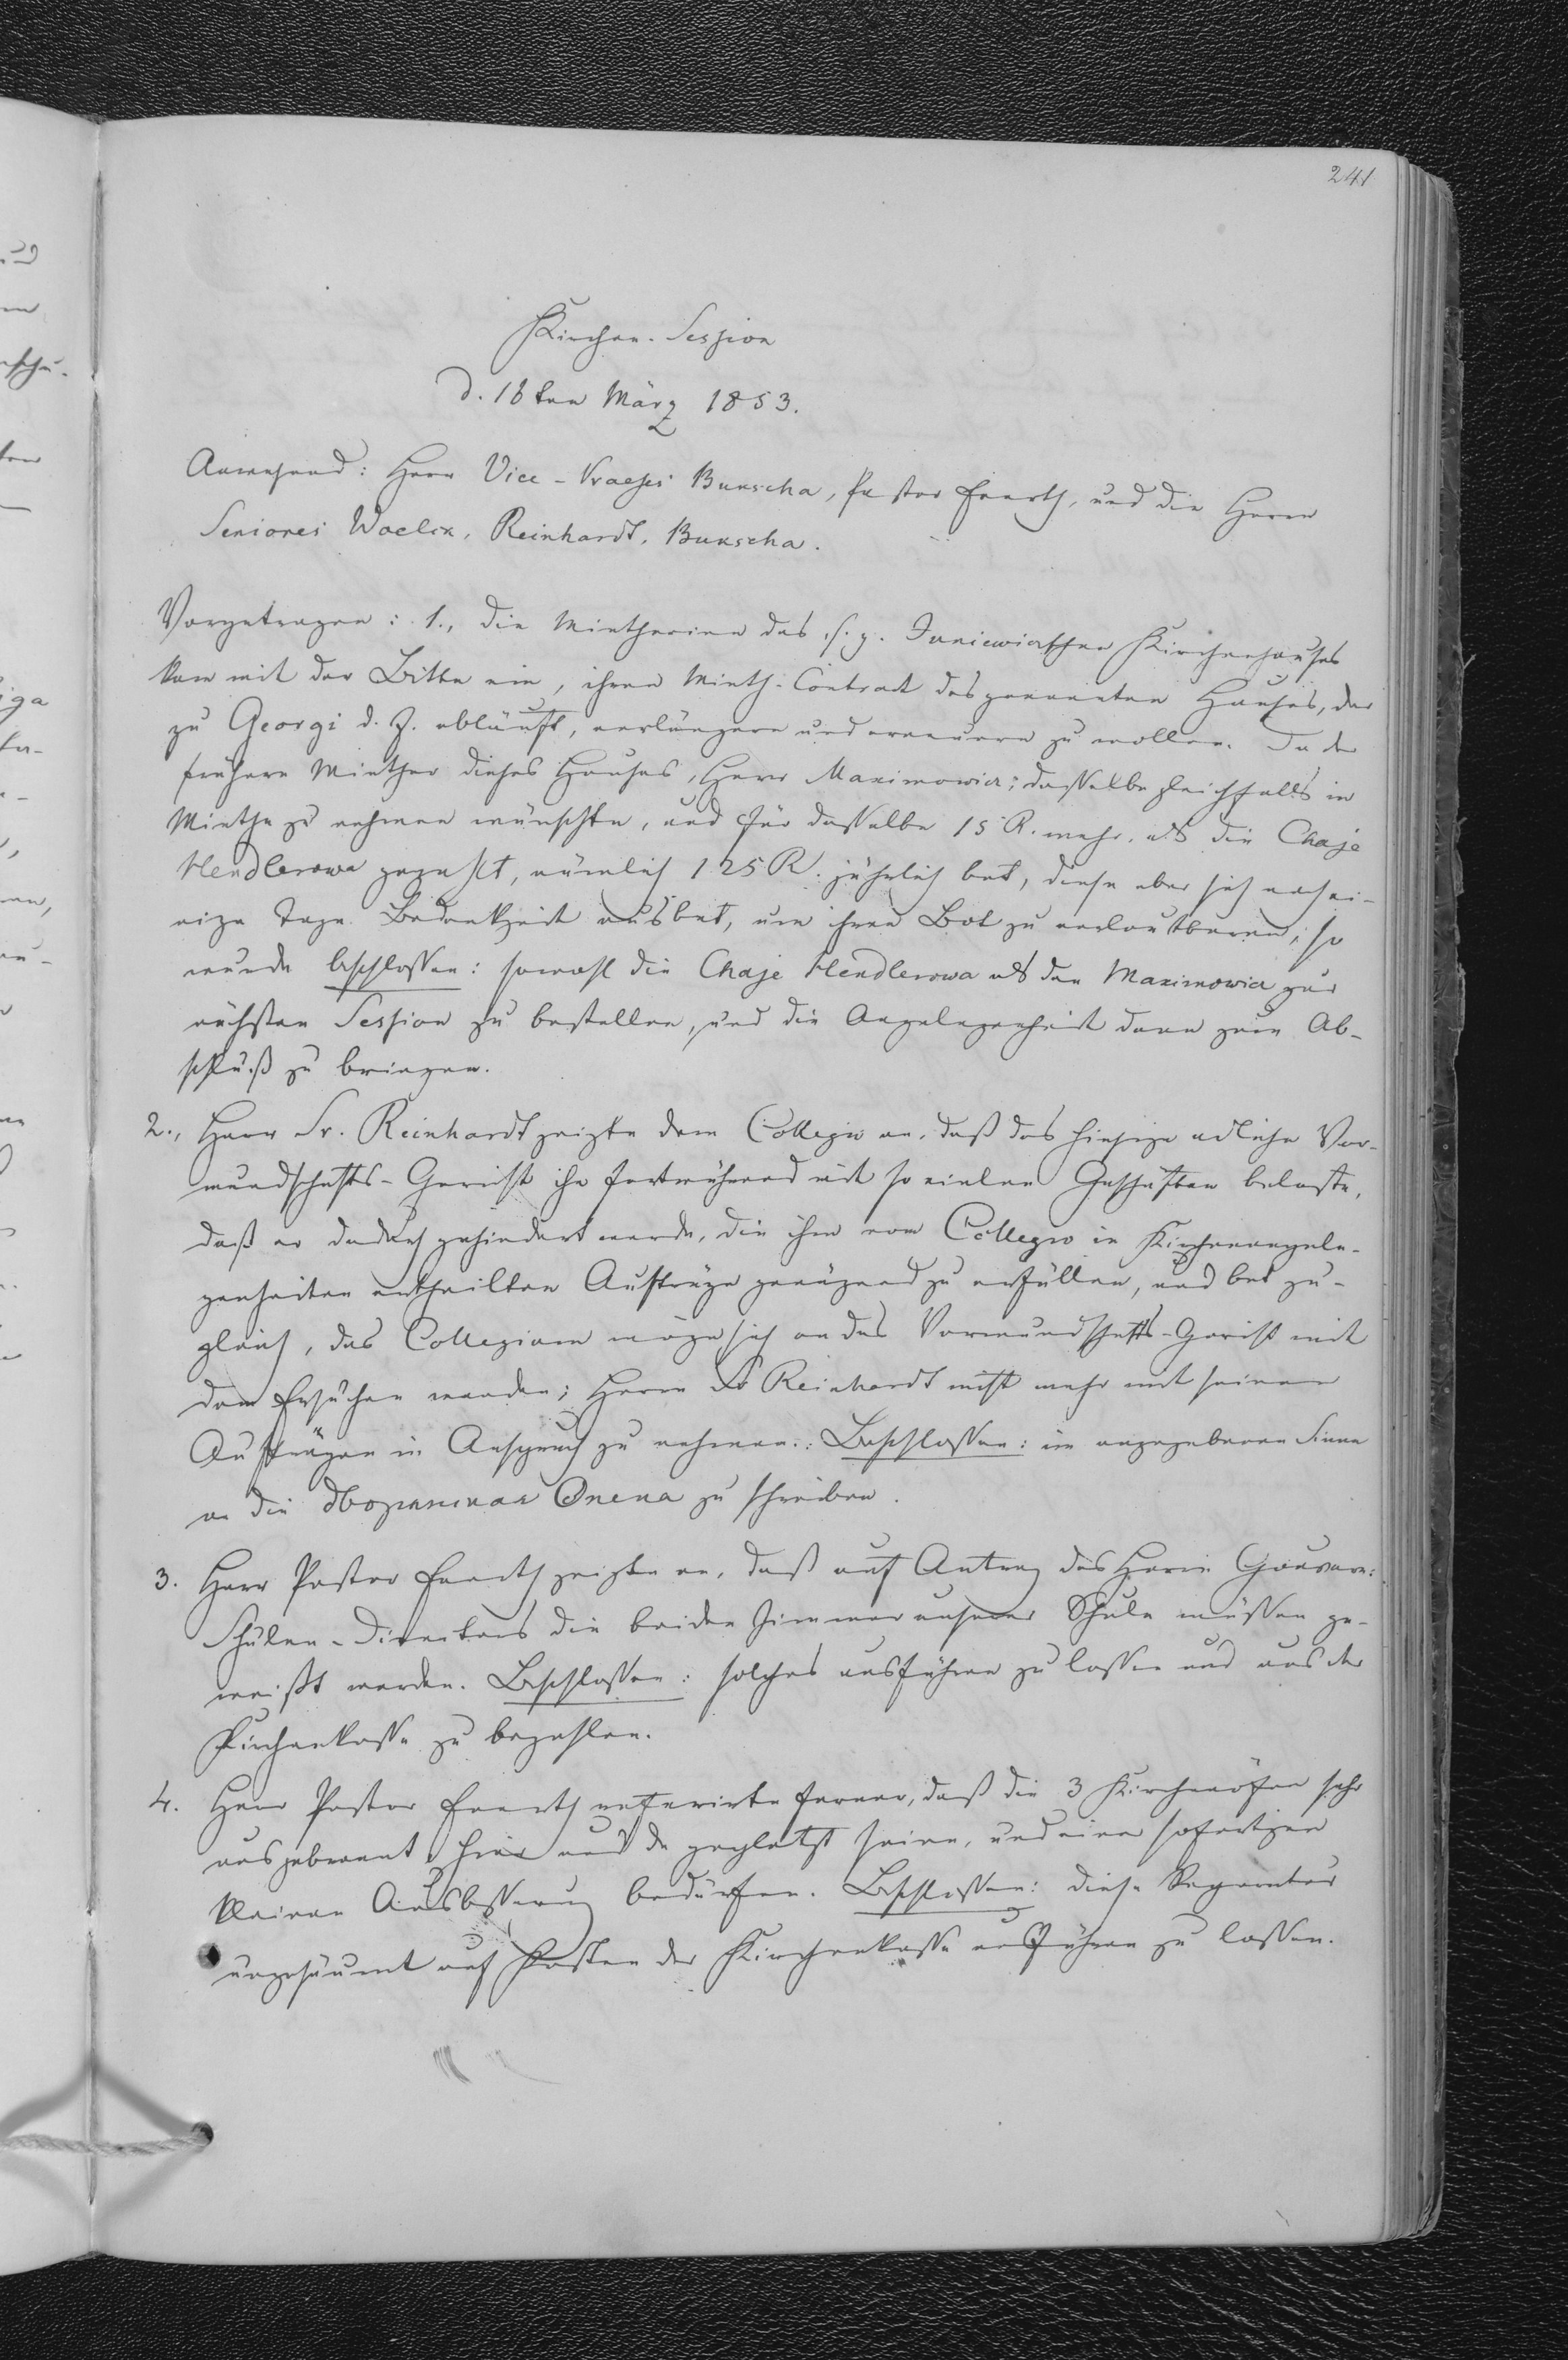 241
Kirchen-Session
d. 18ten März 1853.
Anwesend: Herr Vice-Praeses Bunscha, Pastor Everth, und die Herrn
Seniores Woelck, Reinhardt, Bunscha.
Vorgetragen: 1., die Mietherinn des s. g. Juniewiczschen Kirchenhauses
kam mit der Bitte ein, ihren Mieth-Contract des genannten Hauses, der
zu Georgi d. J. abläuft, verlängern und erneuern zu wollen. Da der
frühere Miether dieses Hauses, Herr Maximowicz, dasselbe gleichfalls in
Miethe zu nehmen wünschte, und für dasselbe 15 R. mehr, als die Chaje
Hendlerowa gezahlt, nämlich 125 R. jährlich bot, diese aber sich noch ei-
nige Tage Bedenkzeit ausbat, um ihren Bot zu verlautbaren; so
wurde beschlossen: sowohl die Chaje Hendlerowa als den Maximowicz zur
nächsten Session zu bestellen, und die Angelegenheit dann zum Ab-
schluß zu bringen.
2., Herr Sr. Reinhardt zeigte dem Collegio an, daß das hiesige adliche Vor-
mundschafts-Gericht ihn fortwährend mit so vielen Geschäften belaste,
daß er dadurch gehindert werde, die ihm vom Collegio in Kirchenangele-
genheiten ertheilten Aufträge genügend zu erfüllen, und bat zu-
gleich, das Collegium möge sich an das Vormundschafts-Gericht mit
dem Ersuchen wenden; Herrn Sr Reinhardt nicht mehr mit seinen
Aufträgen in Anspruch zu nehmen.: Beschlossen: im angegebenen Sinne
an die Дворянская Опека zu schreiben.
3. Herr Pastor Everth zeigte an, daß auf Antrag des Herrn Gouvern:
Schulen-Direktors die beiden Zimmer unserer Schule müssen ge-
weißt werden. Beschlossen: solches ausführen zu lassen und aus der
Kirchenkasse zu bezahlen.
4. Herr Pastor Everth referirte ferner, daß die 3 Kirchenöfen sehr
ausgebrannt, hier und da geplatzt seien, und einer sofortigen
kleinen Ausbesserung bedürfen. Beschlossen: diese Reparatur
ungesäumt auf Kosten der Kirchenkasse ausführen zu lassen.